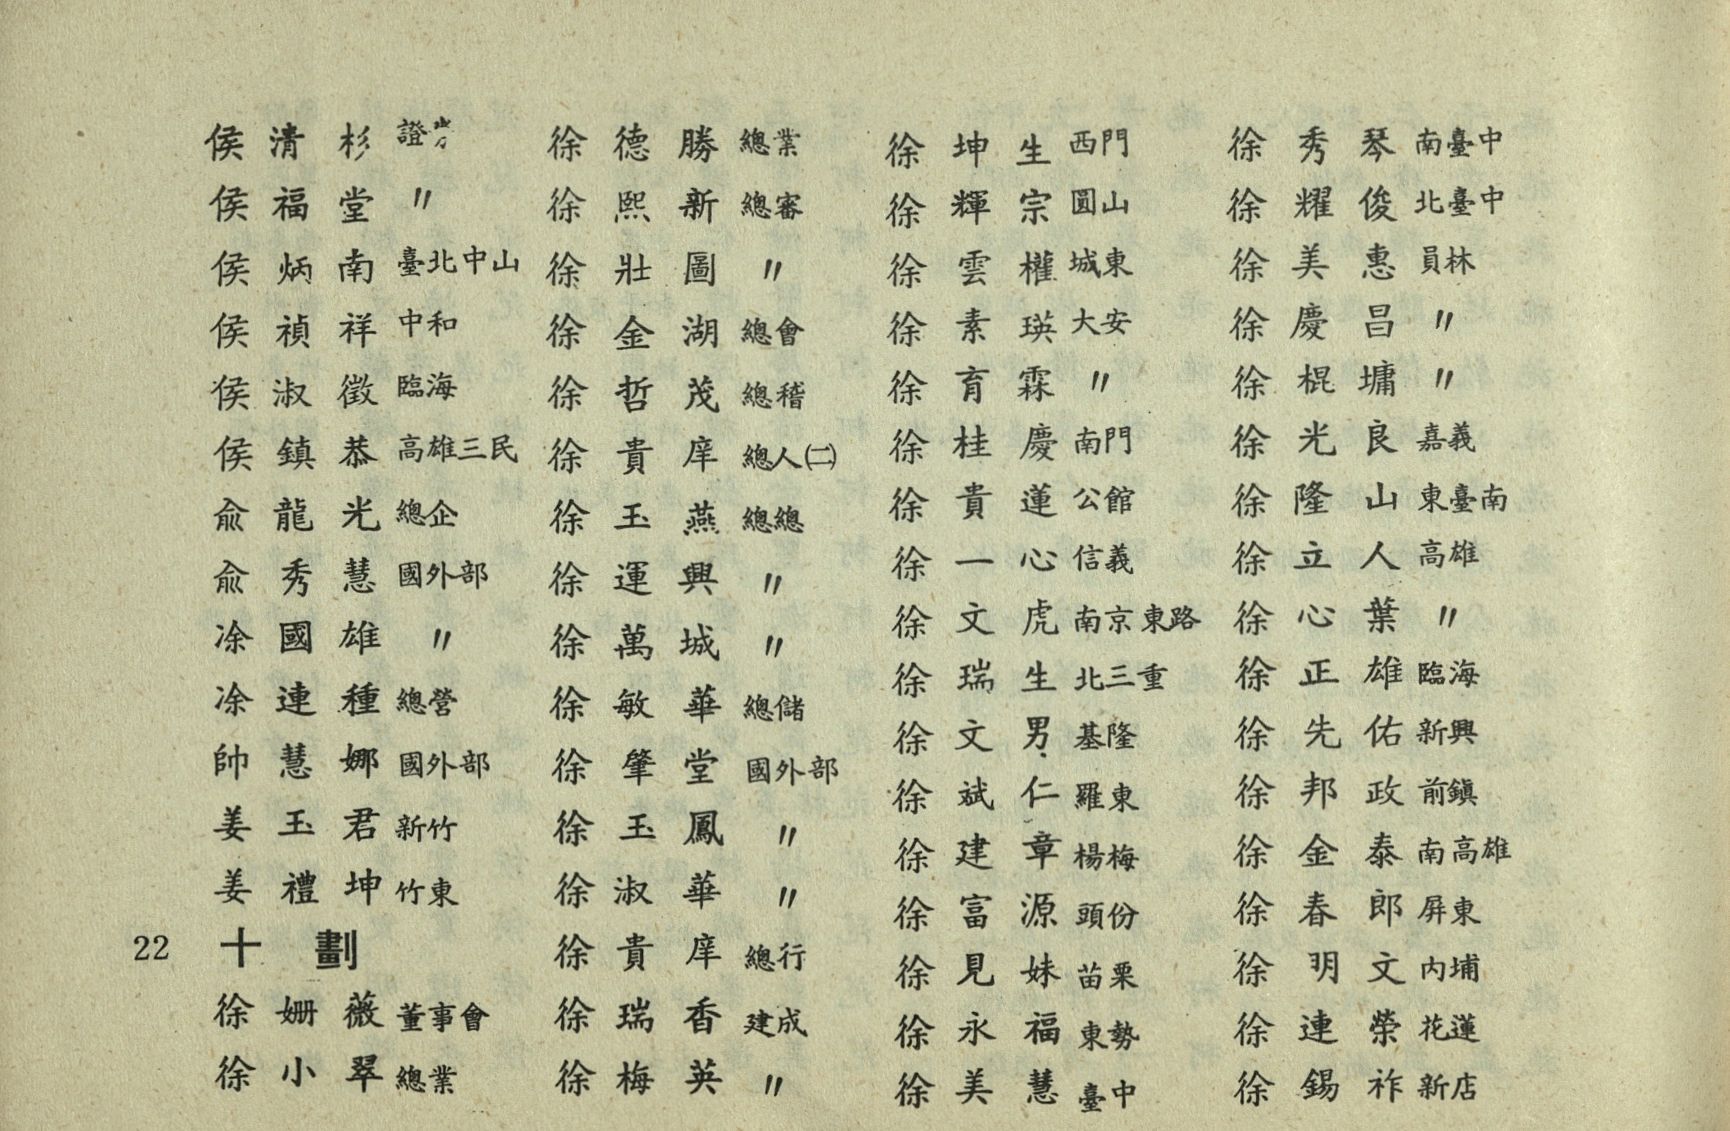 侯清杉 證
侯福堂 〃
侯炳南 臺北中山
侯禎祥 中和
侯淑徵 臨海
侯鎮恭 高雄三民
俞龍光 總企
俞秀慧 國外部
凃國雄 〃
凃連種 總營
帥慧娜 國外部
姜玉君 新竹
姜禮坤 竹東
22 十劃
徐姍薇 董事會
徐小翠 總業
徐德勝 總業
徐熙新 總審
徐壯圖 〃
徐金湖 總會
徐哲茂 總稽
徐貴庠 總人㈡
徐玉燕 總總
徐運興 〃
徐萬城 〃
徐敏華 總儲
徐肇堂 國外部
徐玉鳳 〃
徐淑華 〃
徐貴庠 總行
徐瑞香 建成
徐梅英 〃
徐坤生 西門
徐輝宗 圓山
徐雲權 城東
徐素瑛 大安
徐育霖 〃
徐桂慶 南門
徐貴蓮 公館
徐一心 信義
徐文虎 南京東路
徐瑞生 北三重
徐文男 基隆
徐斌仁 羅東
徐建章 楊梅
徐富源 頭份
徐見妹 苗栗
徐永福 東勢
徐美慧 臺中
徐秀琴 南臺中
徐耀俊 北臺中
徐美惠 員林
徐慶昌 〃
徐棍墉 〃
徐光良 嘉義
徐隆山 東臺南
徐立人 高雄
徐心葉 〃
徐正雄 臨海
徐先佑 新興
徐邦政 前鎮
徐金泰 南高雄
徐春郎 屏東
徐明文 內埔
徐連榮 花蓮
徐錫祚 新店